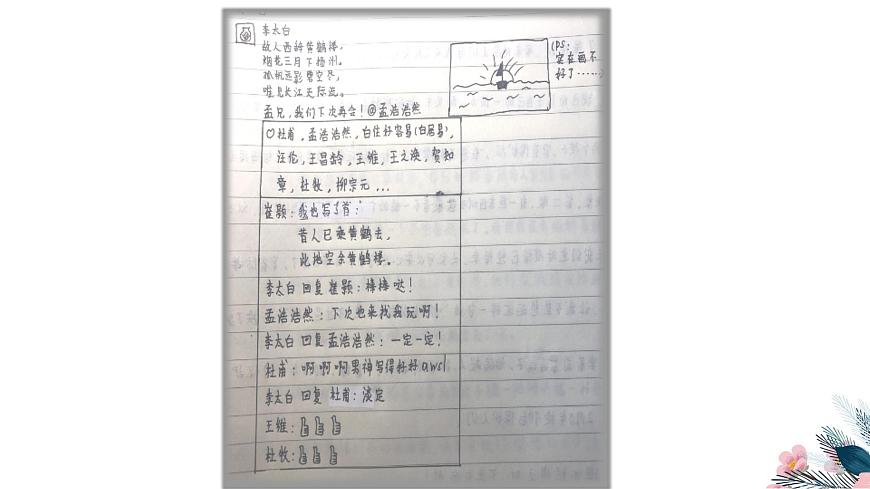 李太白
故人西辞黄鹤楼,
烟花三月下扬州。
孤帆远影碧空尽,
唯见长江天际流。
孟兄,我们下次再会!@孟浩浩然
(PS:
实在画不
好了……)
♡杜甫,孟浩浩然,白住好容易(白居易),
汪伦,王昌龄,王维,王之涣,贺知
章,杜牧,柳宗元...
崔颢:我也写了首:
昔人已乘黄鹤去,
此地空余黄鹤楼。
李太白 回复 崔颢:棒棒哒!
孟浩浩然:下次也来找我玩啊!
李太白 回复 孟浩浩然:一定一定!
杜甫:啊啊啊男神写得好好awsl
李太白 回复 杜甫:淡定
王维:
杜牧: